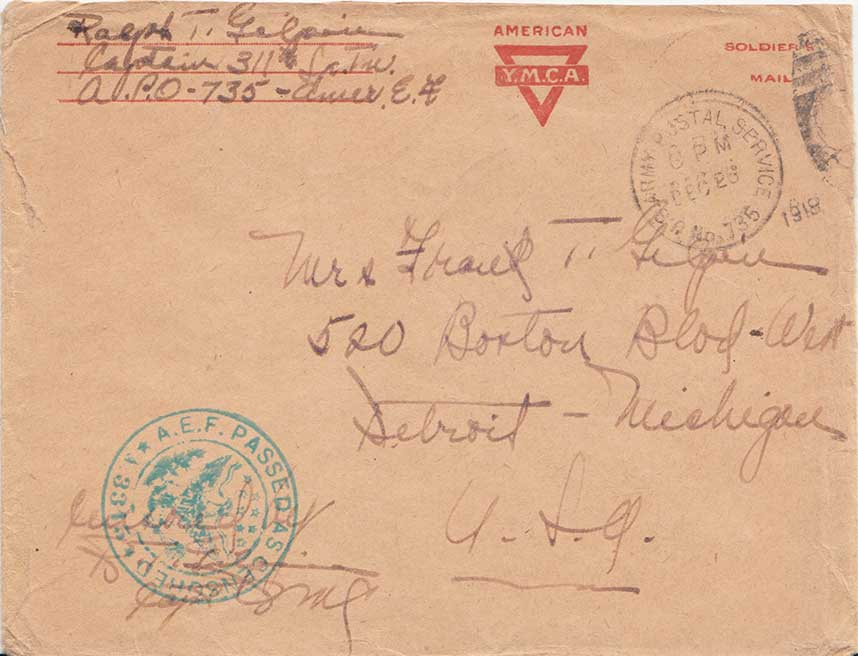 Ralph T. Gilpin
Captain 311th
A.P.O-735-Amer. E.F
AMERICAN
Y.M.C.A.
SOLDIER'S
MAIL
ARMY POSTAL SERVICE
6 PM
DEC 26
1918
735
Mrs Frank T. Gilpin
520 Boston Blvd-West
Detroit - Michigan
U.S.A.
A.E.F. PASSED AS CENSORED
Censored by